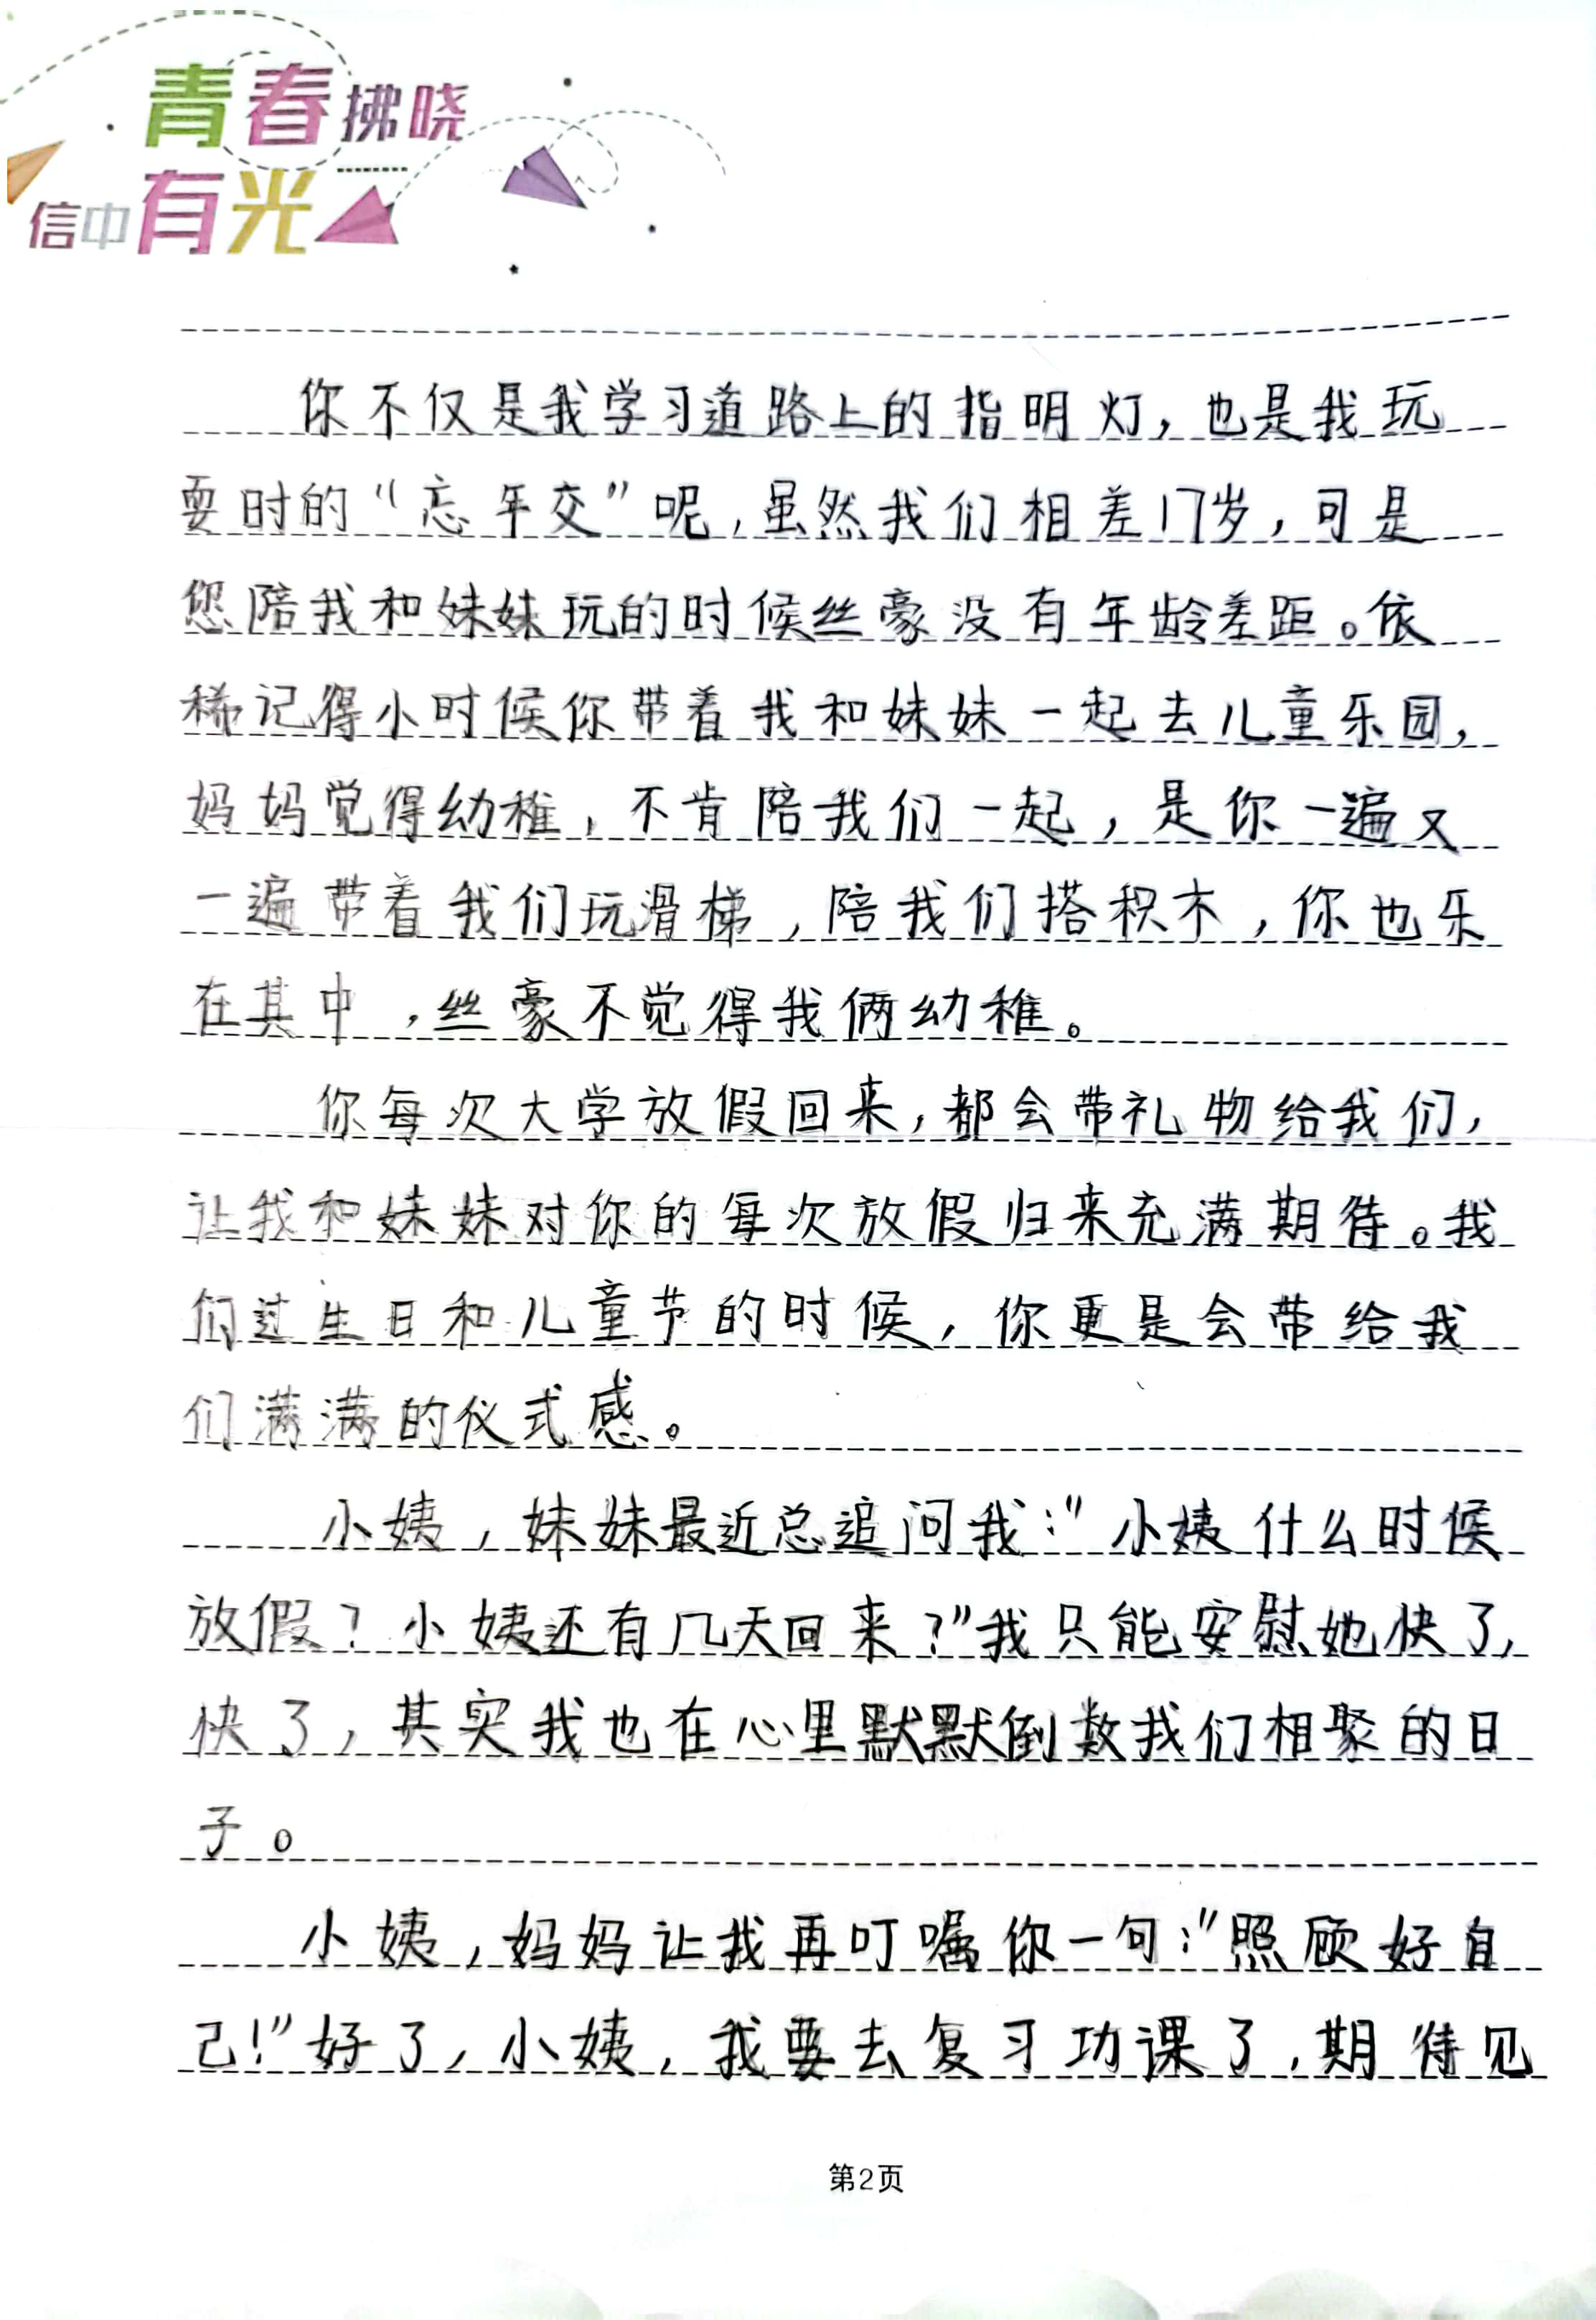 青春拂晓
信中有光
你不仅是我学习道路上的指明灯，也是我玩
耍时的“忘年交”呢，虽然我们相差17岁，可是
您陪我和妹妹玩的时候丝豪没有年龄差距。依
稀记得小时候你带着我和妹妹一起去儿童乐园，
妈妈觉得幼稚，不肯陪我们一起，是你一遍又
一遍带着我们玩滑梯，陪我们搭积木，你也乐
在其中，丝豪不觉得我俩幼稚。
你每次大学放假回来，都会带礼物给我们，
让我和妹妹对你的每次放假归来充满期待。我
们过生日和儿童节的时候，你更是会带给我
们满满的仪式感。
小姨，妹妹最近总追问我：“小姨什么时候
放假？小姨还有几天回来？”我只能安慰她快了，
快了，其实我也在心里默默倒数我们相聚的日
子。
小姨，妈妈让我再叮嘱你一句：“照顾好自
己！”好了，小姨，我要去复习功课了，期待见
第2页